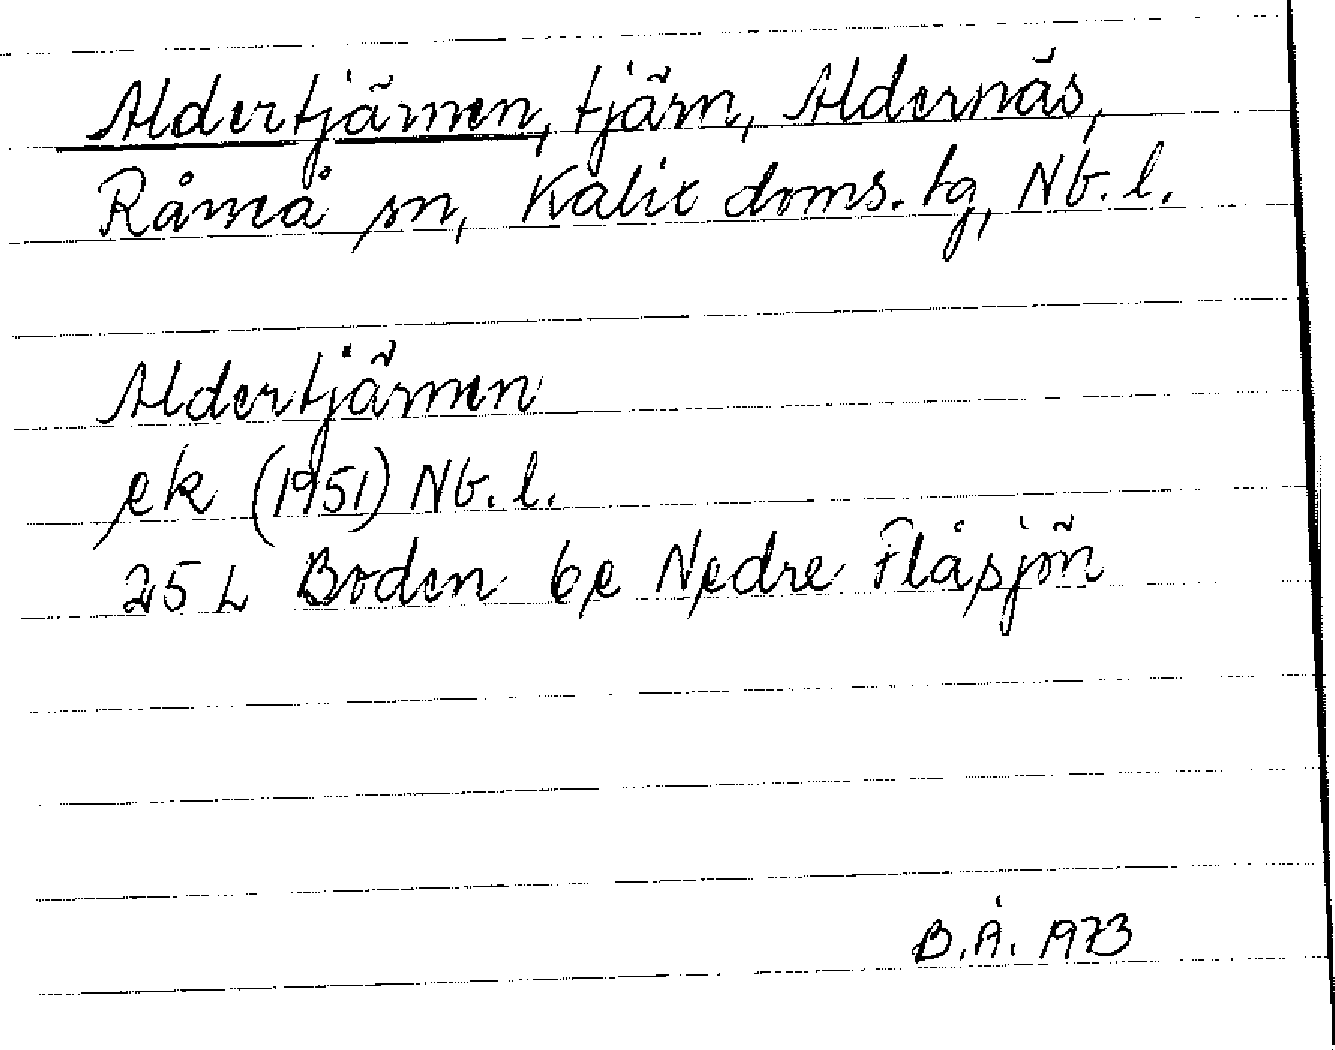 Aldertjärnen, tjärn, Aldernäs,
Råneå sn, Kalix doms. tg, Nb. l.
Aldertjärnen
ek (1951) Nb. l.
25 L Boden 6e Nedre Flåsjön
B.Å. 1973